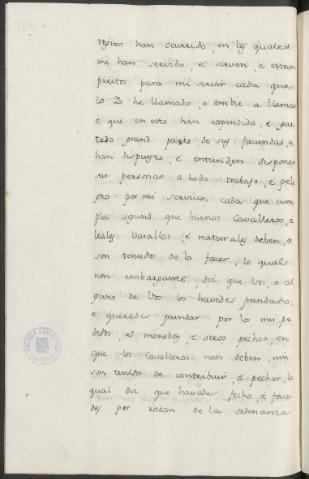 han ocurrido, en los quales
me han servido, e sirven, e estan
prestos para me servir cada que
los Yo he llamado, o embie a llamar
e que en esto han expendido, e gas
tado grand parte de sus faciendas, e
han dispuesto, e entienden disponer
sus personas a todo trabajo, e peli
gro por mi servicio, cada que cum
pla segund que buenos Cavalleros, e
leales Vasallos, e naturales deben, e
son tenudos de lo facer, lo qual
non embargante diz que Vos, o al
guno de Vos los havedes prendado,
e queredes prendar por los mis pe
didos, e monedas, e otros pechos, en
que los Cavalleros non deben, nin
son tenidos de contribuir, e pechar, lo
qual diz que havedes fecho, e face
des por razon de la ordenanza